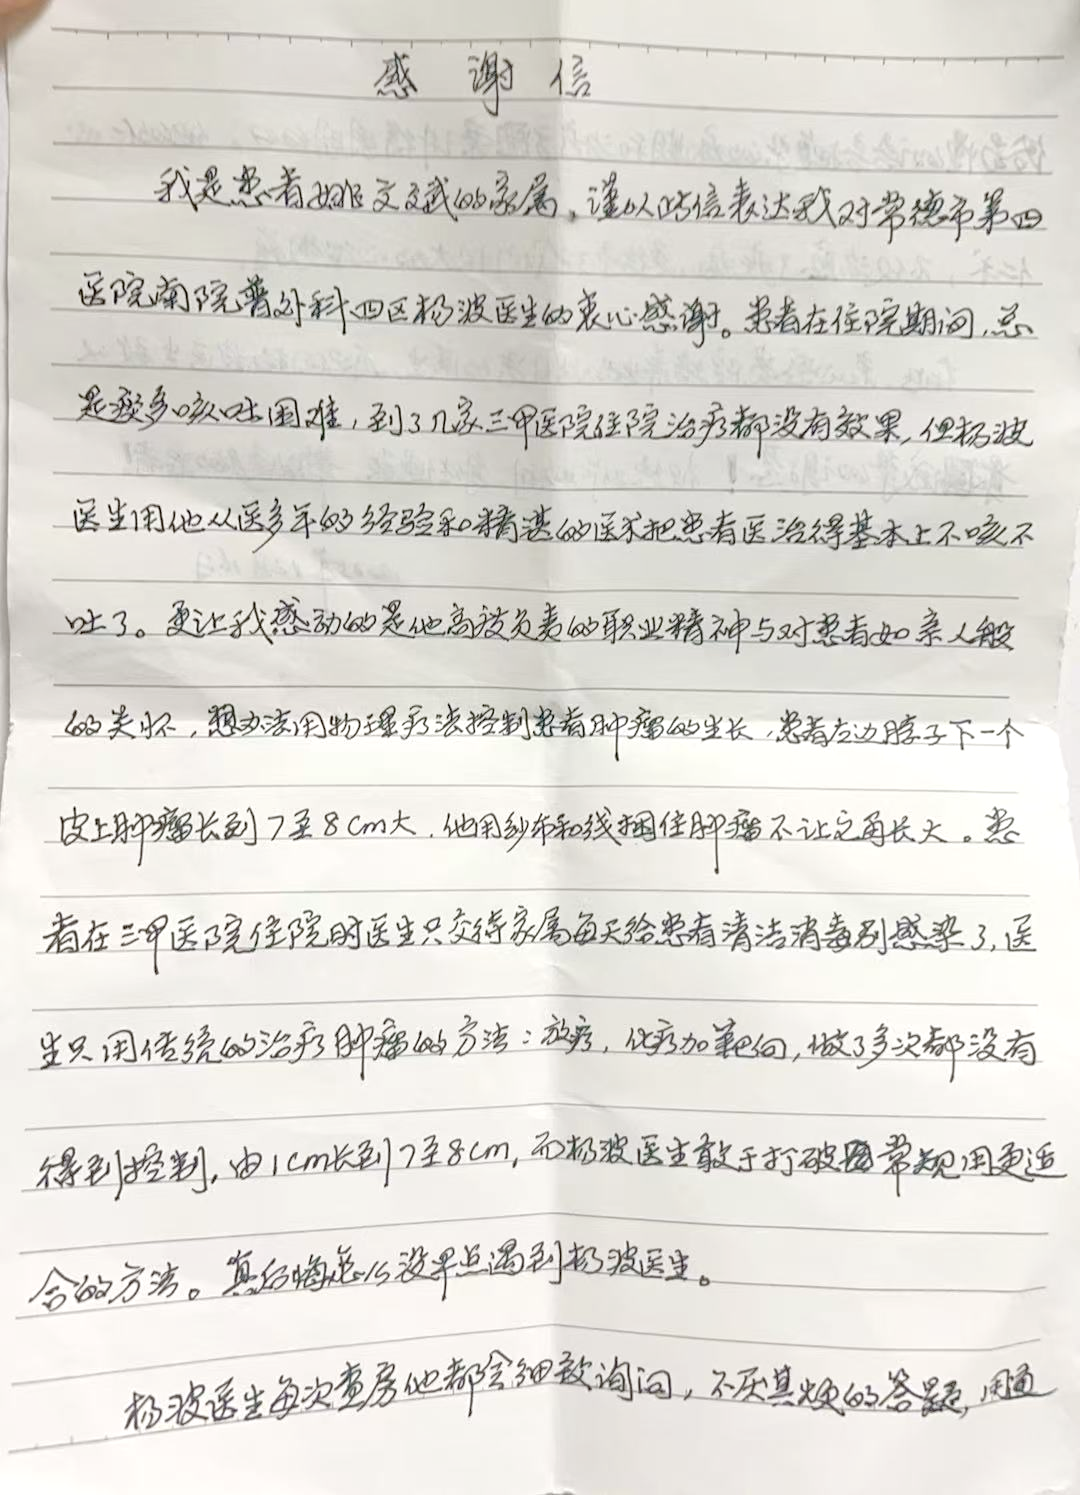 感谢信
我是患者姚文斌的家属，谨以此信表达我对常德市第四
医院南院普外科四区杨波医生的衷心感谢。患者在住院期间，总
是痰多咳吐困难，到了几家三甲医院住院治疗都没有效果，但杨波
医生用他从医多年的经验和精湛的医术把患者医治得基本上不咳不
吐了。更让我感动的是他高度负责的职业精神与对患者如亲人般
的关怀，想办法用物理疗法控制患者肿瘤的生长，患者左边脖子下一个
皮上肿瘤长到7至8cm大，他用纱布和线捆住肿瘤不让它再长大。患
者在三甲医院住院时医生只交待家属每天给患者清洁消毒别感染了，医
生只用传统的治疗肿瘤的方法：放疗，化疗加靶向，做了多次都没有
得到控制，由1cm长到7至8cm，而杨波医生敢于打破常规用更适
合的方法。真后悔怎么没早点遇到杨波医生。
杨波医生每次查房他都会细致询问，不厌其烦的答题，用通